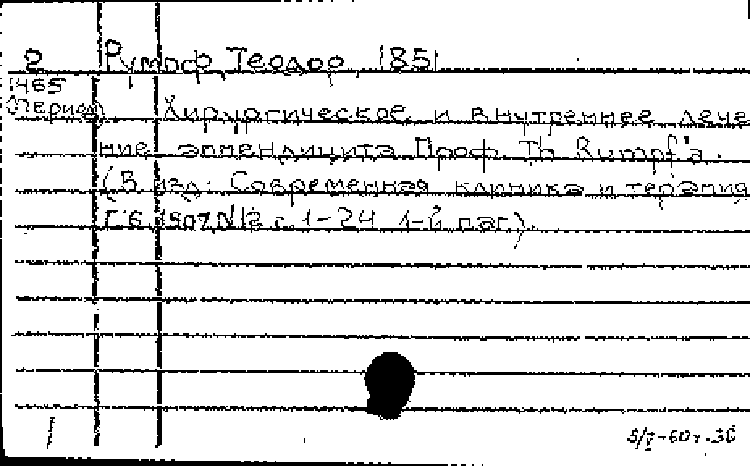 2 Румпф, Теодор, 1851
1465
период. Хирургическое и внутреннее лече
ние аппендицита Проф. Th Rumpf'a.
(В изд: Современная клиника и терапия
Г.6 1907 N12 с. 1-24 1-й паг).
5/I-60г. ЗС